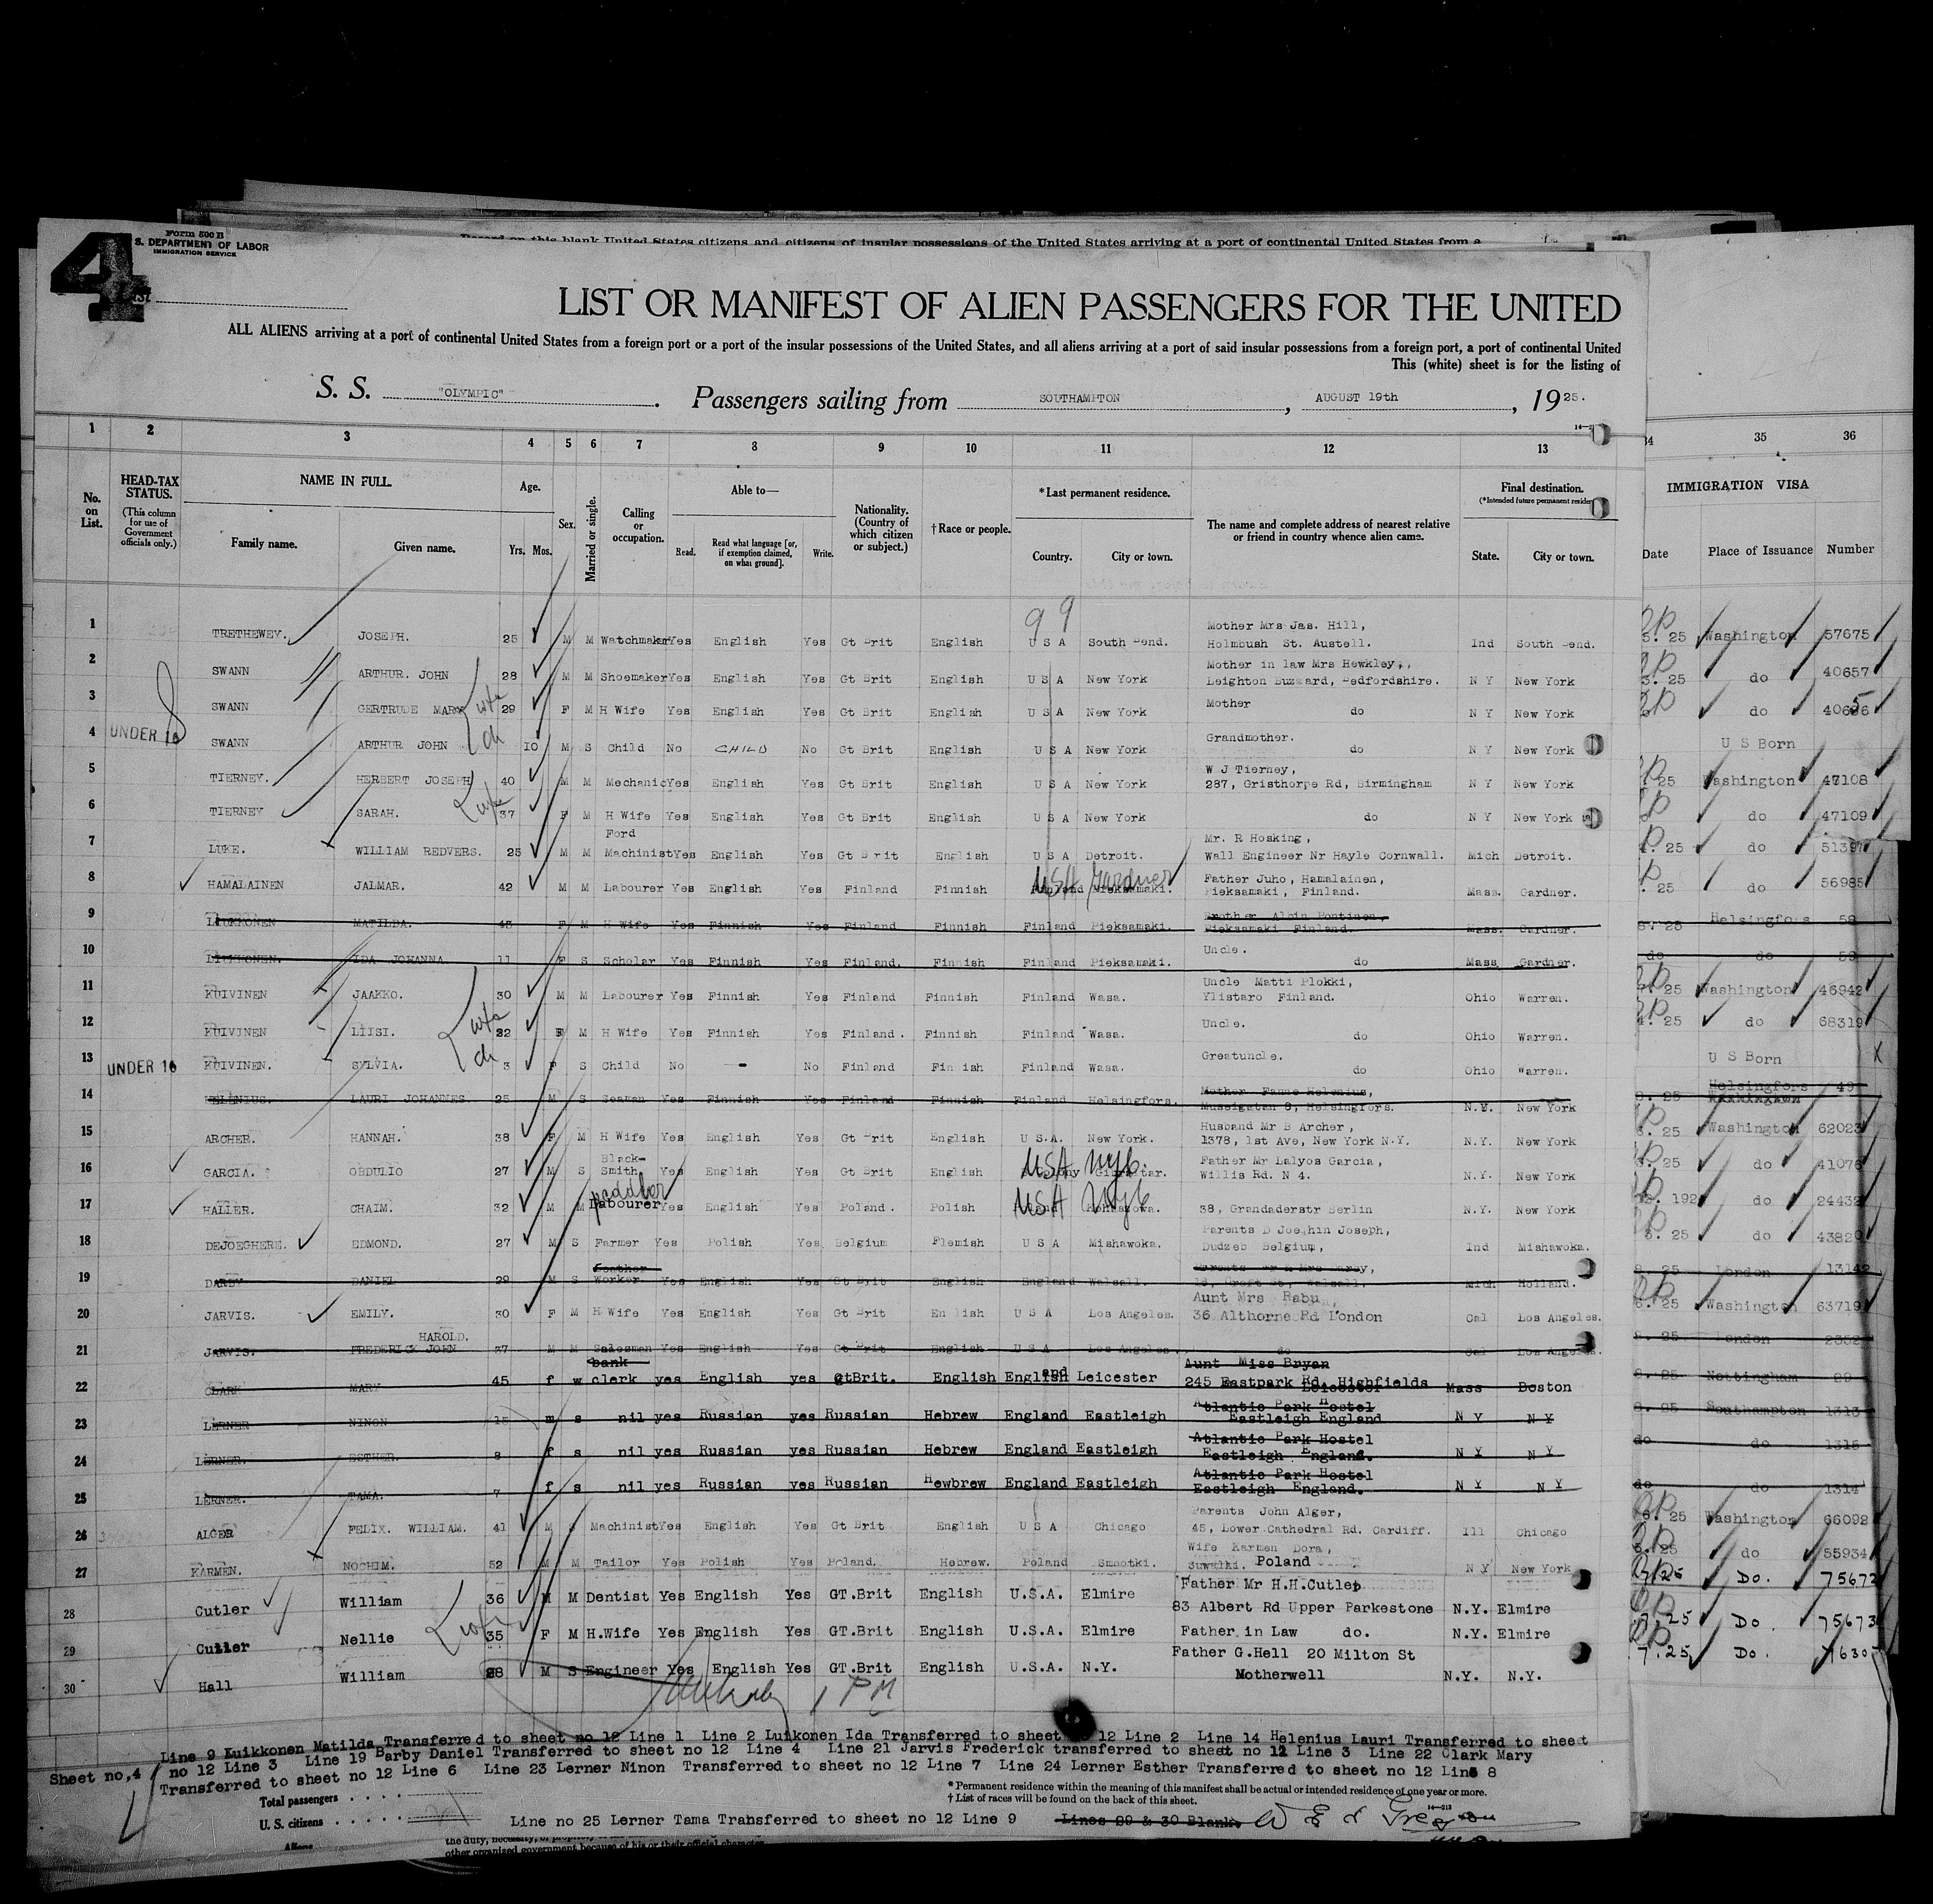 4
Form 500 B
S. DEPARTMENT OF LABOR
IMMIGRATION SERVICE
Record on this blank United States citizens and citizens of insular possessions of the United States arriving at a port of continental United States from a
LIST OR MANIFEST OF ALIEN PASSENGERS FOR THE UNITED
ALL ALIENS arriving at a port of continental United States from a foreign port or a port of the insular possessions of the United States, and all aliens arriving at a port of said insular possessions from a foreign port, a port of continental United
This (white) sheet is for the listing of
S. S. "OLYMPIC". Passengers sailing from SOUTHAMPTON, AUGUST 19th, 1925.
1 2 3 4 5 6 7 8 9 10 11 12 13 34 35 36
No. on List. HEAD-TAX STATUS. (This column for use of Government officials only.) NAME IN FULL. Family name. Given name. Age. Yrs. Mos. Sex. Married or single. Calling or occupation. Able to— Read. Read what language [or, if exemption claimed, on what ground]. Write. Nationality. (Country of which citizen or subject.) †Race or people. *Last permanent residence. Country. City or town. The name and complete address of nearest relative or friend in country whence alien came. Final destination. (*Intended future permanent residence) State. City or town. IMMIGRATION VISA Date Place of Issuance Number
99
1 TRETHEWEY. JOSEPH. 25 M M Watchmaker Yes English Yes Gt Brit English U S A South Bend. Mother Mrs Jas. Hill, Holmbush St. Austell. Ind South Bend. 25 Washington 57675
2 SWANN ARTHUR. JOHN 28 M M Shoemaker Yes English Yes Gt Brit English U S A New York Mother in law Mrs Hewkley, Leighton Buzzard, Bedfordshire. N Y New York 25 do 40657
3 SWANN GERTRUDE MARY wife 29 F M H Wife Yes English Yes Gt Brit English U S A New York Mother do N Y New York do 40656
4 UNDER 16 SWANN ARTHUR JOHN ch 10 M S Child No CHILD No Gt Brit English U S A New York Grandmother. do N Y New York U S Born
5 TIERNEY. HERBERT JOSEPH 40 M M Mechanic Yes English Yes Gt Brit English U S A New York W J Tierney, 287, Gristhorpe Rd, Birmingham N Y New York 25 Washington 47108
6 TIERNEY SARAH. wife 37 F M H Wife Yes English Yes Gt Brit English U S A New York do N Y New York do 47109
7 LUKE. WILLIAM REDVERS. 25 M M Ford Machinist Yes English Yes Gt Brit English U S A Detroit. Mr. R Hosking, Wall Engineer Nr Hayle Cornwall. Mich Detroit. 25 do 51397
8 HAMALAINEN JALMAR. 42 M M Labourer Yes English Yes Finland Finnish USA Gardner Pieksamaki. Father Juho, Hamalainen, Pieksamaki, Finland. Mass. Gardner. 25 do 56985
9 MATILDA. 43 F M H Wife Yes Finnish Yes Finland Finnish Finland Pieksamaki. Brother Albin Pontinen, Pieksamaki Finland. Mass. Gardner. 25 Helsingfors 58
10 IDA JOHANNA 11 F S Scholar Yes Finnish Yes Finland. Finnish Finland Pieksamaki. Uncle. do Mass Gardner. do do 59
11 KUIVINEN JAAKKO. 30 M M Labourer Yes Finnish Yes Finland Finnish Finland Wasa. Uncle Matti Plokki, Ylistaro Finland. Ohio Warren. 25 Washington 46942
12 KUIVINEN LIISI. wife 22 F M H Wife Yes Finnish Yes Finland. Finnish Finland Wasa. Uncle. do Ohio Warren. 25 do 68319
13 UNDER 16 KUIVINEN. SYLVIA. ch 3 F S Child No - No Finland Finnish Finland Wasa. Greatuncle. do Ohio Warren. U S Born X
14 HELENIUS. LAURI JOHANNES 25 M S Seaman Yes Finnish Yes Finland Finnish Finland Helsingfors. Mother Fanne Helenius, Museigatan 8, Helsingfors. N.Y. New York 25 Helsingfors 49
15 ARCHER. HANNAH. 38 F M H Wife Yes English Yes Gt Brit English U S.A. New York. Husband Mr B Archer, 1378, 1st Ave, New York N.Y. N.Y. New York 25 Washington 62023
16 GARCIA. OBDULIO 27 M S Black-Smith. Yes English Yes Gt Brit English USA Nyc. Father Mr Lalyos Garcia, Willis Rd. N 4. N.Y. New York 25 do 41076
17 HALLER. CHAIM. 32 M M Labourer peddler Yes English Yes Poland. Polish USA Nyc 38, Grandaderstr Berlin N.Y. New York 192 do 24432
18 DEJOEGHERE. EDMOND. 27 M S Farmer Yes Polish Yes Belgium Flemish U S A Mishawoka. Parents D Joeghin Joseph, Dudzeb Belgium, Ind Mishawoka. 25 do 43820
19 DARBY DANIEL 29 M S Leather Worker Yes English Yes Gt Brit English England Walsall. Parents Mr & Mrs Darby, 18, Croft St, Walsall. Mich Holland. 25 London 13142
20 JARVIS. EMILY. 30 F M H Wife Yes English Yes Gt Brit English U S A Los Angeles. Aunt Mrs Rabu 36 Althorne Rd London Cal Los Angeles. 25 Washington 63719
21 JARVIS. FREDERICK JOHN HAROLD. 37 M M Salesman Yes English Yes Gt Brit English U S A Los Angeles. do Cal Los Angeles. 25 London 2352
22 CLARK MARY 45 f w bank clerk yes English yes GtBrit. English England Leicester Aunt Miss Bryan 245 Eastpark Rd. Highfields Leicester Mass Boston 25 Nottingham 29
23 LERNER NINON 15 m s nil yes Russian yes Russian Hebrew England Eastleigh Atlantic Park Hostel Eastleigh England N Y N Y 25 Southampton 1313
24 LERNER. ESTHER. 8 f s nil yes Russian yes Russian Hebrew England Eastleigh Atlantic Park Hostel Eastleigh England. N Y N Y do do 1315
25 LERNER. TAMA. 7 f s nil yes Russian yes Russian Hewbrew England Eastleigh Atlantic Park Hostel Eastleigh England. N Y N Y do do 1314
26 ALGER FELIX. WILLIAM. 41 M S Machinist Yes English Yes Gt Brit English U S A Chicago Parents John Alger, 45, Lower Cathedral Rd. Cardiff. Ill Chicago 25 Washington 66092
27 KARMEN. NOCHIM. 52 M M Tailor Yes Polish Yes Poland. Hebrew. Poland Smotki. Wife Karmen Dora, Suwalki. Poland N Y New York 25 do 55934
28 Cutler William 36 M M Dentist Yes English Yes GT.Brit English U.S.A. Elmire Father Mr H.H.Cutler 83 Albert Rd Upper Parkestone N.Y. Elmire 7 25 Do. 75672
29 Cutler Nellie wife 35 F M H.Wife Yes English Yes GT.Brit English U.S.A. Elmire Father in Law do. N.Y. Elmire 7.25 Do. 75673
30 Hall William 28 M S Engineer Yes English Yes GT.Brit English U.S.A. N.Y. Father G.Hell 20 Milton St Motherwell N.Y. N.Y. 7.25 Do.
1 PM
Line 9 Kuikkonen Matilda Transferred to sheet no 12 Line 1 Line 2 Luikonen Ida Transferred to sheet 12 Line 2 Line 14 Helenius Lauri Transferred to sheet
Sheet no,4 no 12 Line 3 Line 19 Barby Daniel Transferred to sheet no 12 Line 4 Line 21 Jarvis Frederick transferred to sheet no 12 Line 3 Line 22 Clark Mary
Transferred to sheet no 12 Line 6 Line 23 Lerner Ninon Transferred to sheet no 12 Line 7 Line 24 Lerner Esther Transferred to sheet no 12 Line 8
Total passengers
* Permanent residence within the meaning of this manifest shall be actual or intended residence of one year or more.
† List of races will be found on the back of this sheet.
U. S. citizens
Line no 25 Lerner Tama Transferred to sheet no 12 Line 9 Lines 29 & 30 Blank.
Aliens
other organized government because of his or their official character